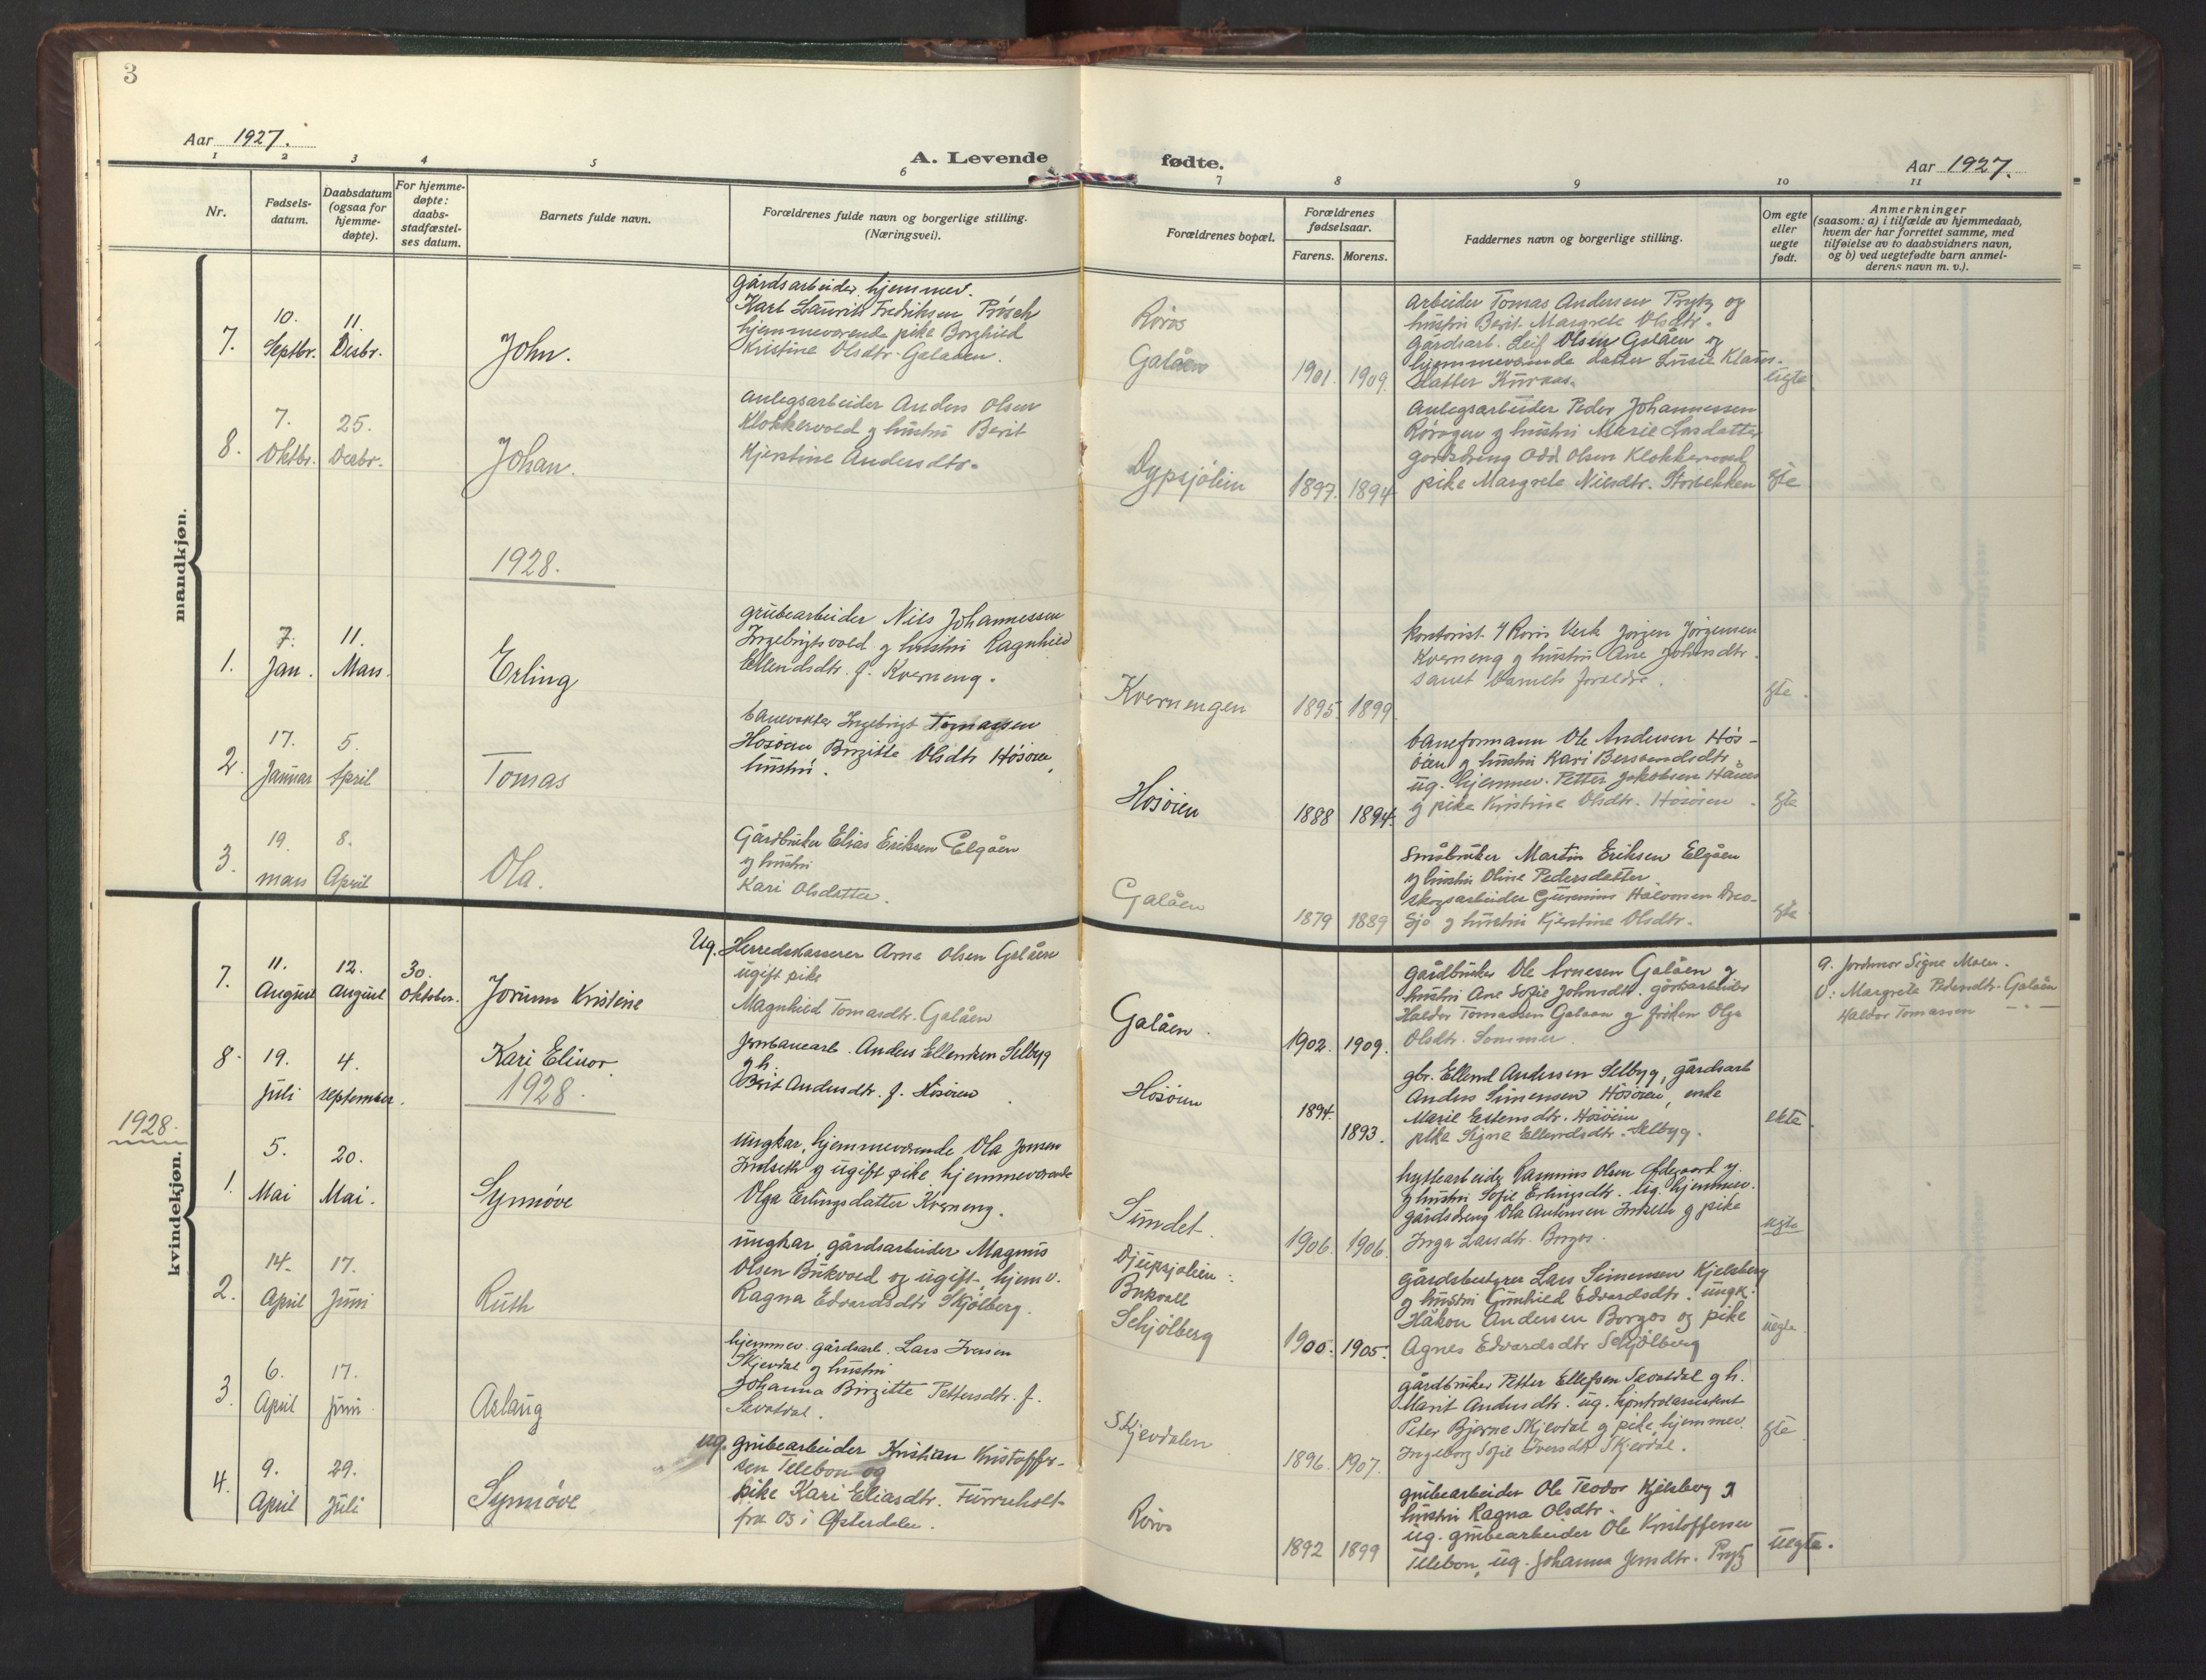 3
Aar 1927.
A. Levende fødte.
Aar 1927.
1 2 3 4 5 6 7 8 9 10 11
Nr.
Fødsels-
datum.
Daabsdatum
(ogsaa for
hjemme-
døpte).
For hjemme-
døpte:
daabs-
stadfæstel-
ses datum.
Barnets fulde navn.
Forældrenes fulde navn og borgerlige stilling.
(Næringsvei).
Forældrenes bopæl.
Forældrenes
fødselsaar.
Farens. Morens.
Faddernes navn og borgerlige stilling.
Om egte
eller
uegte
født.
Anmerkninger
(saasom: a) i tilfælde av hjemmedaab,
hvem der har forrettet samme, med
tilføielse av to daabsvidners navn,
og b) ved uegtefødte barn anmel-
derens navn m. v.).
mandkjøn.
7.
10.
Septbr.
11.
Desbr.
John.
gårdsarbeider hjemmev.
Karl Laurits Fredriksen Prösch
hjemmeværende pike Borghild
Kristine Olsdtr. Galåen.
Røros
Galåen
1901. 1909.
arbeider Tomas Andersen Prytz og
hustru Berit Margrete Olsdtr.
gårdsarb. Leif Olsen Galåen og
hjemmeværende datter Lusie Klaus-
datter Kurås.
uegte
8.
7.
Oktbr.
25.
Desbr.
Johan.
anlegsarbeider Anders Olsen
Klokkervold og hustru Berit
Kjerstine Andersdtr.
Dypsjølien
1897. 1894
anlegsarbeider Peder Johannessen
Rørogen og hustru Marie Larsdatter
gårdsdreng Odd Olsen Klokkervold
pike Margrete Nilsdtr. Storbekken
egte
1928.
1.
7.
Jan.
11.
Mars.
Erling
grubearbeider Nils Johannessen
Ingebrigtsvold og hustru Ragnhild
Ellendsdtr. f. Kverneng.
Kvernengen
1895. 1899
kontorist v/ Røros Verk Jørgen Jørgensen
Kverneng og hustru Ane Johnsdtr.
samt barnets foreldre.
egte.
2.
17.
Januar
5.
April
Tomas
banevokter Ingebrigt Tomassen
Hosøien, Birgitte Olsdtr Høsøien,
hustru.
Hosøien
1888 1894.
baneformann Ole Andersen Høs-
øien og hustru Kari Bersvendsdtr.
ug. hjemmev. Petter Jakobsen Hånes
og pike Kristine Olsdtr. Hosøien.
egte
3.
19.
mars
8.
April
Ola.
Gårdbruker Elias Eriksen Elgåen
og hustru
Kari Olsdatter.
Galåen
1879 1889
Småbruker Martin Eriksen Elgåen
og hustru Oline Pedersdatter
skogsarbeider Gunerius Halvorsen Dreo-
sjø og hustru Kjerstine Olsdtr.
egte
1928.
kvindekjøn.
7.
11.
August
12.
August
30.
oktober.
Jorunn Kristine
Ug. Herredskasserer Arne Olsen Galåen
ugift pike
Magnhild Tomasdtr. Galåen
Galåen.
1902. 1909.
gårdbruker Ole Arnesen Galåen og
hustru Ane Sofie Johnsdtr. gårdsarbeider
Haldor Tomassen Galåen og frøken Olga
Olsdtr. Sommer.
a. Jordmor Signe Moen.
V: Margrete Pedersdtr. Galåen
Haldor Tomassen — " —
8.
19.
Juli
4.
september.
Kari Elinor.
Jernbanearb. Anders Ellendsen Selbyg
og h.
Berit Andersdtr. f. Hosøien
Høsøien
1894.
1893.
gbr. Ellend Andersen Selbyg, gårdsarb
Anders Simensen Hosøien, enke
Marie Estensdtr. Hosøien
pike Signe Ellendsdtr. Selbyg.
ekte.
1928.
1.
5.
Mai
20.
Mai.
Synnöve
ungkar, hjemmeværende Ola Jonsen
Indseth og ugift pike, hjemmeværende
Olga Erlingsdatter Kverneng.
Sundet.
1906. 1906.
hyttearbeider Rasmus Olsen Ødegaard og
og hustru Sofie Erlingsdtr. ug. hjemmev.
gårdsdreng Ola Antonsen Indseth og pike
Inga Larsdtr. Borgos.
uegte
2.
14.
April
17.
Juni
Ruth
ungkar, gårdsarbeider Magnus
Olsen Bukvold og ugift hjemv.
Ragna Edvardsdtr Skjølberg.
Djupsjølien:
Bukvoll
Schjølberg
1900. 1905.
gårdsbestyrer Lars Simensen Kjelsberg
og hustru Gunhild Edvardsdtr. ungk.
Håkon Andersen Borgos og pike
Agnes Edvardsdtr Schjølberg
uegte.
3.
6.
April
17.
Juni
Aslaug
hjemmev. gårdsarb. Lars Iversen
Skjevdal og hustru
Johanna Birgitte Pettersdtr. f.
Sevatdal.
Skjevdalen
1896. 1907.
gårdbruker Petter Ellefsen Sevatdal og h.
Marit Andersdtr. ug. kontrolassistent
Peter Bjarne Skjevdal og pike, hjemmev.
Ingeborg Sofie Iversdtr Skjevdal.
egte
4.
9.
April
29.
Juli
Synnöve
ug. grubearbeider Kristian Kristoffer-
sen Tellebon og
pike Kari Eliasdtr. Furruholt
fra Os i Østerdalen.
Røros
1892 1899
grubearbeider Ole Teodor Kjelsberg og
hustru Ragna Olsdtr.
ug. grubearbeider Ole Kristoffersen
Tellebon, ug. Johanna Jensdtr. Prytz
uegte.